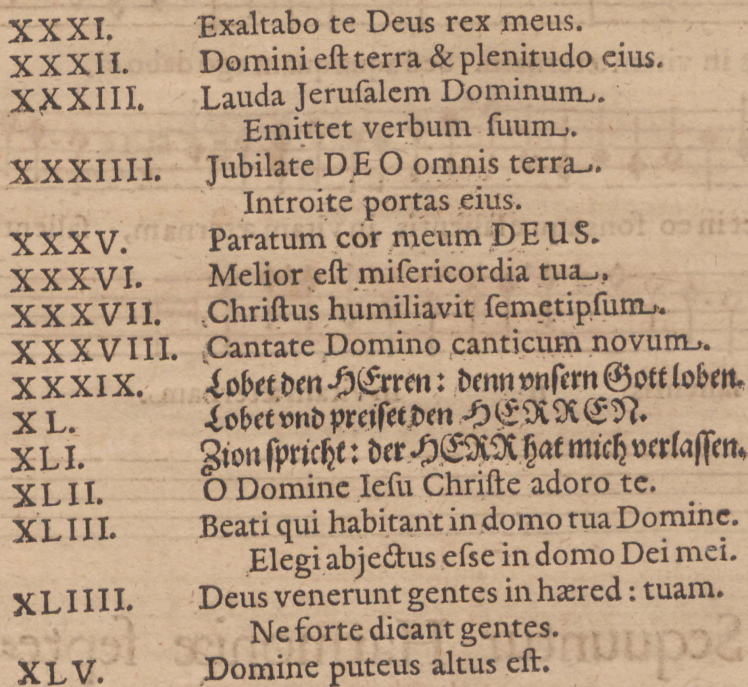 XXXI. Exaltabo te Deus rex meus.
XXXII. Domini eſt terra & plenitudo eius.
XXXIII. Lauda Jeruſalem Dominum.
Emittet verbum ſuum.
XXXIIII. Jubilate DEO omnis terra.
Introite portas eius.
XXXV. Paratum cor meum DEUS.
XXXVI. Melior eſt miſericordia tua.
XXXVII. Chriſtus humiliavit ſemetipſum.
XXXVIII. Cantate Domino canticum novum.
XXXIX. Lobet den HErren: denn vnſern Gott loben.
XL. Lobet vnd preiſet den HERREN.
XLI. Zion ſpricht: der HERR hat mich verlaſſen.
XLII. O Domine Ieſu Chriſte adoro te.
XLIII. Beati qui habitant in domo tua Domine.
Elegi abjectus eſse in domo Dei mei.
XLIIII. Deus venerunt gentes in hæred: tuam.
Ne forte dicant gentes.
XLV. Domine puteus altus eſt.